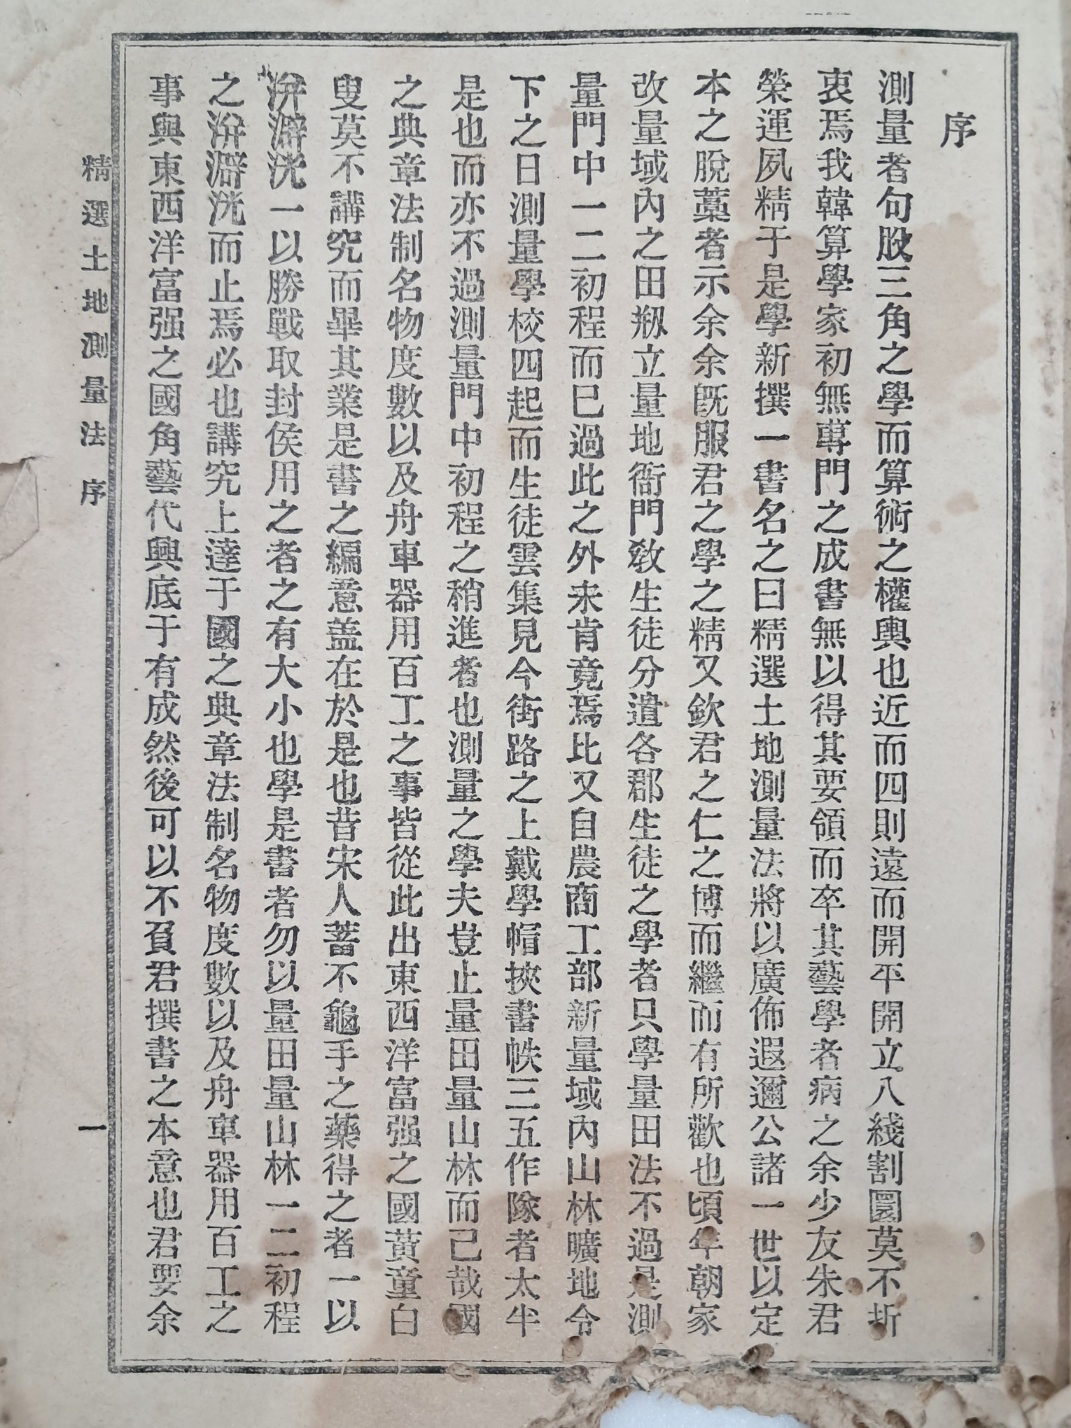 序
測量者句股三角之學而算術之權輿也近而四則遠而開平開立八綫割圜莫不折
衷焉我韓算學家初無專門之成書無以得其要領而卒其藝學者病之余少友朱君
榮運夙精于是學新撰一書名之曰精選土地測量法將以廣佈遐邇公諸一世以定
本之脫藁者示余余旣服君之學之精又欽君之仁之博而繼而有所歡也頃年朝家
改量域內之田刱立量地衙門敎生徒分遣各郡生徒之學者只學量田法不過是測
量門中一二初程而巳過此之外未肯竟焉比又自農商工部新量域內山林曠地令
下之日測量學校四起而生徒雲集見今街路之上戴學帽挾書帙三五作隊者太半
是也而亦不過測量門中初程之稍進者也測量之學夫豈止量田量山林而己哉國
之典章法制名物度數以及舟車器用百工之事皆從此出東西洋富强之國黃童白
叟莫不講究而畢其業是書之編意盖在於是也昔宋人蓄不龜手之藥得之者一以
洴澼洸一以勝戰取封侯用之者之有大小也學是書者勿以量田量山林一二初程
之洴澼洸而止焉必也講究上達于國之典章法制名物度數以及舟車器用百工之
事與東西洋富强之國角藝代興底于有成然後可以不負君撰書之本意也君要余
精選土地測量法 序
一